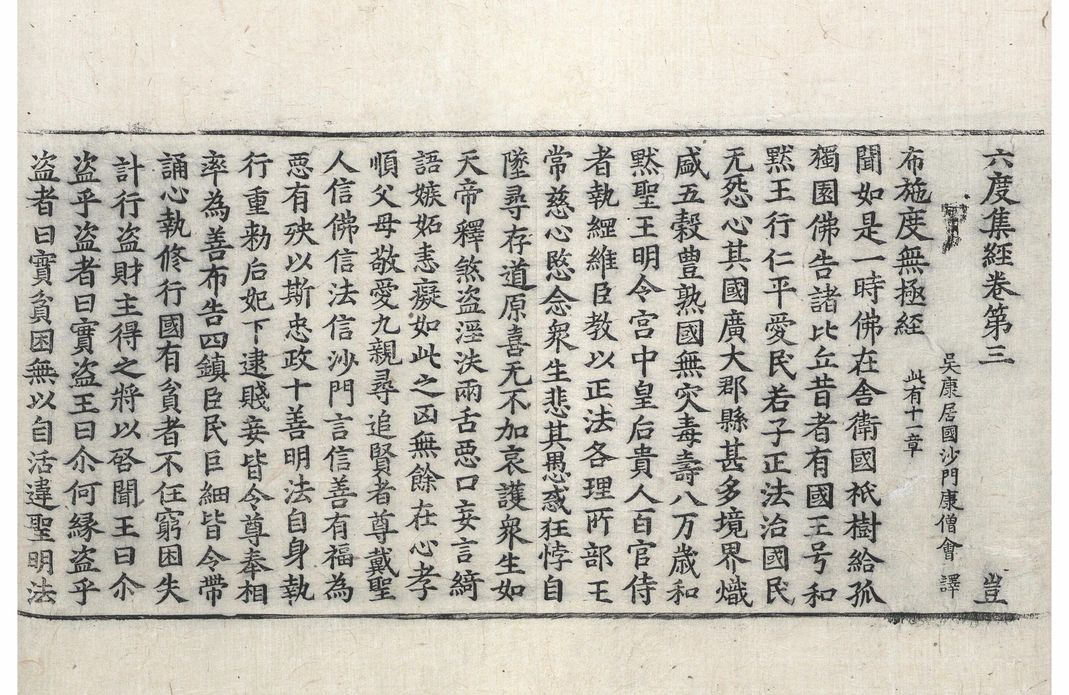 六度集經卷第三 豈
吳康居國沙門康僧會 譯
布施度無極經 此有十一章
聞如是一時佛在舍衛國祇樹給孤
獨園佛告諸比丘昔者有國王号和
黙王行仁平愛民若子正法治國民
无惌心其國廣大郡縣甚多境界熾
盛五穀豊熟國無灾毒壽八万歲和
黙聖王明令宮中皇后貴人百官侍
者執經維臣教以正法各理所部王
常慈心愍念衆生悲其愚惑狂悖自
墬尋存道原喜无不加哀護衆生如
天帝釋煞盜淫泆兩舌惡口妄言綺
語嫉妬恚癡如此之㐫無餘在心孝
順父母敬愛九親尋追賢者尊戴聖
人信佛信法信沙門言信善有福為
惡有殃以斯忠政十善明法自身執
行重勑后妃下逮賤妾皆令尊奉相
率為善布告四鎮臣民巨細皆令帶
誦心執修行國有貧者不任窮困失
計行盗財主得之將以啓聞王曰尒
盗乎盗者曰實盗王曰尒何縁盗乎
盗者曰實貧困無以自活違聖明法